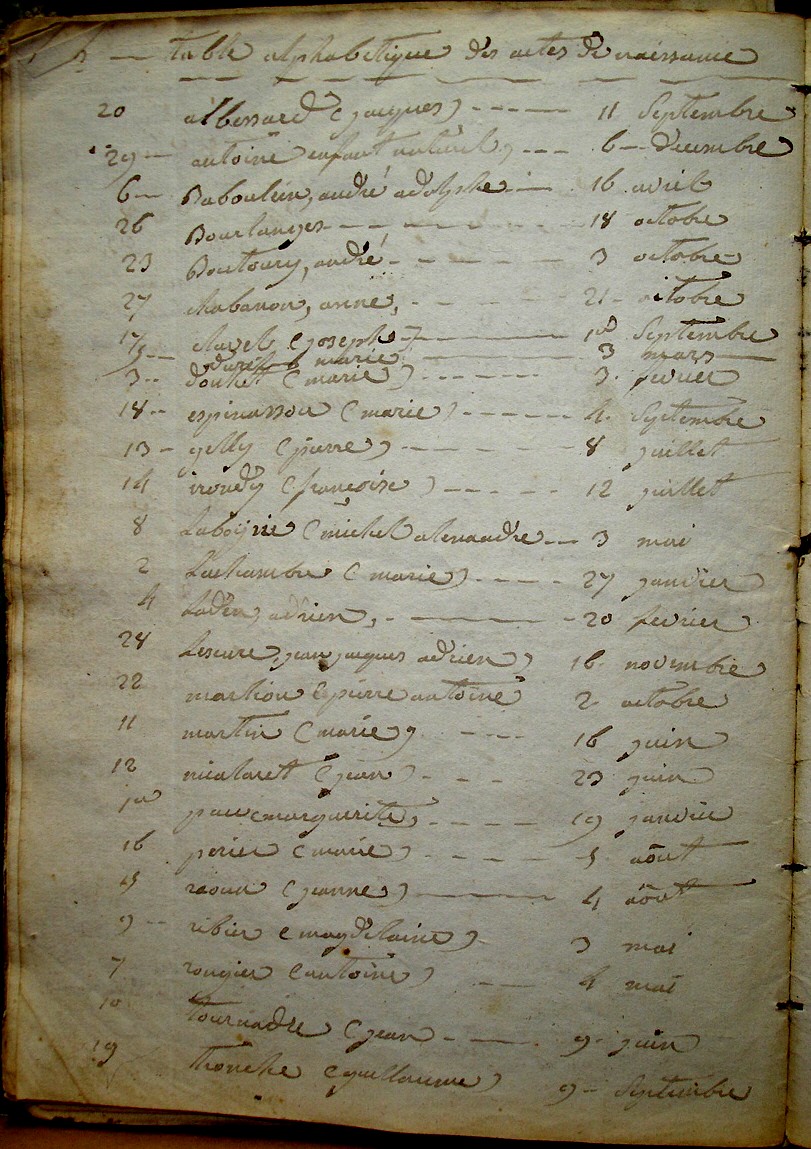 table alphabetique des actes de naissance
20 albessard (jacques) 11 Septembre
29 antoine enfant naturel, 6 decembre
6 Baboulein, andré adolphe 16 avril
26 Bourlanges 18 octobre
23 Boutoury, andré 3 octobre
27 chabanon, anne, 21 octobre
17 clavel (joseph) 1er Septembre
5 marie 3 mars
3 douhet (marie) 3 fevrier
18 espinassou (marie) 4 Septembre
13 gelly (pierre) 8 juillet
14 (françoise) 12 juillet
8 (michel alexandre 3 mai
2 Lachambre (marie) 27 janvier
4 adrien, 20 fevrier
28 Lescure, jean jacques adrien) 16 novembre
22 (pierre antoine 2 octobre
11 martin (marie) 16 juin
12 nicolaret (jean) 23 juin
1er pau (marguerite) 19 janvier
16 perier (marie) 5 août
15 raoux (jeanne) 4 août
9 ribier (magdelaine) 3 mai
7 rougier (antoine) 4 mai
10 tournadre (jean 9 juin
19 tronche (guillaume) 9 Septembre